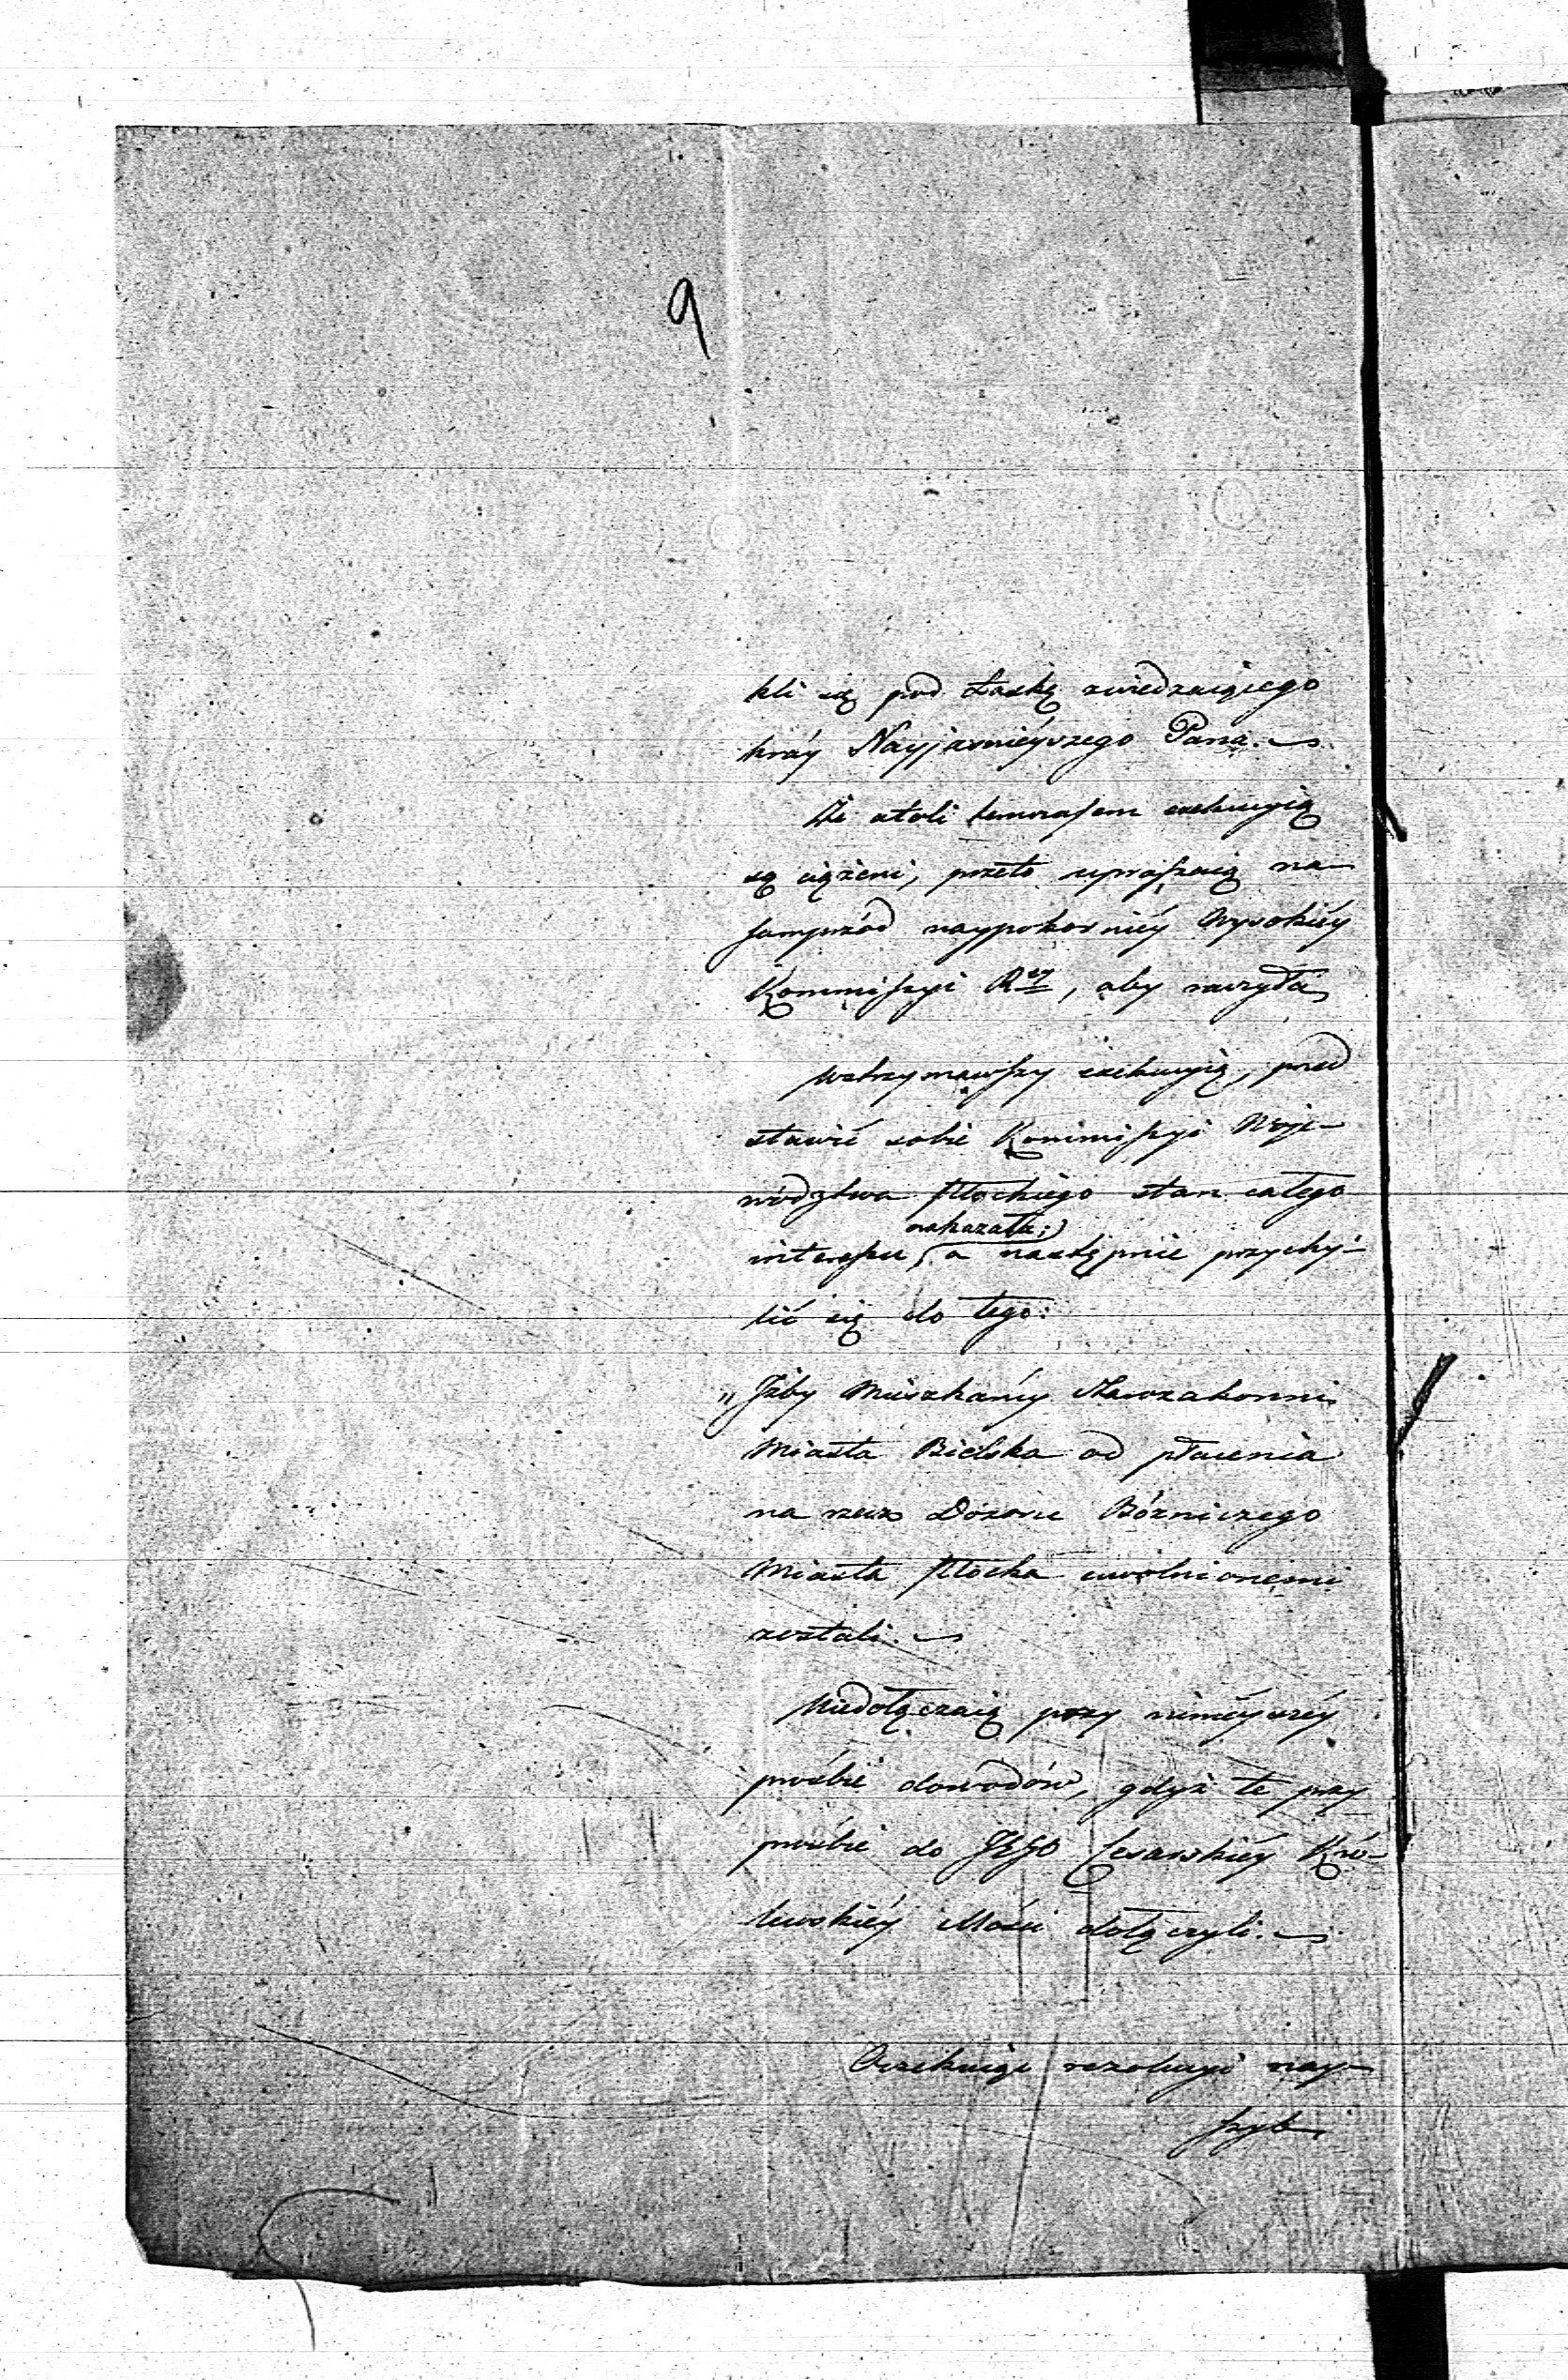 9
kli się pod Łaskę zwiedzaiącego
kráy Nayjasnieyszego Pana.
Że atoli temczasem exekucyią
są ciążeni, przeto upraszaią na
sampwzód naypokorniéy Wysokiéy
Kommissyi R<sup>ey</sup>, aby raczyła
wstrzymawszy exekucyią, przed
stawić sobie Kommissyi Woje-
wódzlwa Płockiego stan całego
nakazała;
interessu, a następnie przychy-
lić się do tego:
„Iżby Mieszkańcy Starozakonni
Miasta Bielska od płacenia
na rzecz Dozoru Bóżniczego
Miasta Płocka uwolnionemi
zostali.
Niedołączaią przy niniéyszéy
prośbie dowodów, gdyż te przy
prośbie do JEGO Cesarskiéy Kró-
lewskiéy Mości dołączyli.
Oczekuiąc rezolucyi nay-
szyb